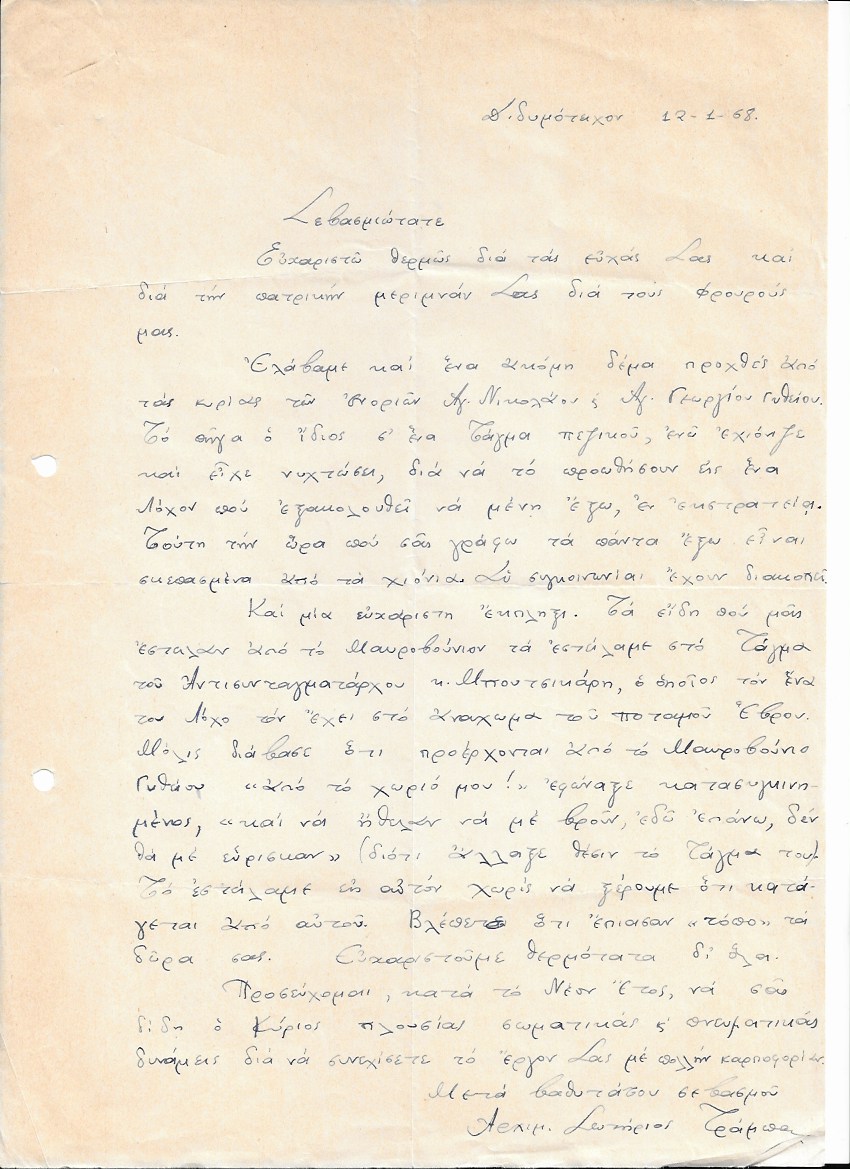 Διδυμότηχον 12-1-68.
Σεβασμιώτατε
Εὐχαριστῶ θερμῶς διά τάς εὐχάς Σας καί
διά τήν πατρικήν μεριμνάν Σας διά τούς φρουρούς
μας.
Ἐλάβαμε καί ἕνα ἀκόμη δέμα προχθές ἀπό
τάς κυρίας τῶν ἐνοριῶν Ἁγ. Νικολάου ϛ Ἁγ. Γεωργίου Γυθείου.
Τό πῆγα ὁ ἴδιος σ' ἕνα Τάγμα πεζικοῦ, ἐνῶ ἐχιόνιζε
καί εἶχε νυχτώσει, διά νά τό προωθήσουν εἰς ἕνα
Λόχον πού ἐξακολουθεῖ νά μένη ἔξω, ἐν ἐκστρατείᾳ.
Τούτη τήν ὥρα πού σᾶς γράφω τά πάντα ἔξω εἶναι
σκεπασμένα ἀπό τά χιόνια. Αἱ συγκοινωνίαι ἔχουν διακοπεῖ.
Καί μία εὐχάριστη ἔκπληξι. Τά εἴδη πού μᾶς
ἐστειλαν ἀπό τό Μαυροβούνιον τά ἐστείλαμε στό Τάγμα
τοῦ Ἀντισυνταγματάρχου κ. Μπουτσικάρη, ὁ ὁποῖος τόν ἕνα
του Λόχο τόν ἔχει στό ἀνάχωμα τοῦ ποταμοῦ Ἕβρου.
Μόλις διάβασε ὅτι προέρχονται ἀπό τό Μαυροβούνιο
Γυθείου «ἀπό τό χωριό μου!» ἐφώναξε κατασυγκινη-
μένος, «καί νά ἤθελαν νά μέ βροῦν, ἐδῶ ἐπάνω, δέν
θά μέ εὕρισκαν» (διότι ἄλλαξε θέσιν τό Τάγμα του).
Τό ἐστείλαμε εἰς αὐτόν χωρίς νά ξέρουμε ὅτι κατά-
γεται ἀπό αὐτοῦ. Βλέπετε ὅτι ἔπιασαν «τόπο» τά
δῶρα σας. Εὐχαριστοῦμε θερμότατα δι' ὅλα.
Προσεύχομαι, κατά τό Νέον Ἔτος, νά σᾶς
δίδη ὁ Κύριος πλουσίας σωματικάς ϛ πνευματικάς
δυνάμεις διά νά συνεχίσετε τό ἔργον Σας μέ πολλήν καρποφορίαν.
Μετά βαθυτάτου σεβασμοῦ
Ἀρχιμ. Σωτήριος Τράμπας